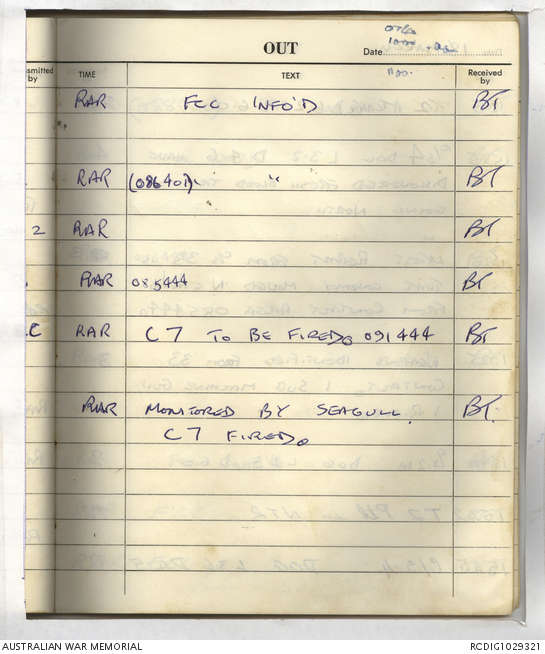 OUT
Date
smitted by TIME TEXT Received by
RAR FCC INFO'D BT
RAR (086401) " " BT
2 RAR BT
RAR 085444 BT
C RAR C7 TO BE FIRED. 091444 BT
RAR MONITORED BY SEAGULL. BT.
C7 FIRED.
AUSTRALIAN WAR MEMORIAL RCDIG1029321